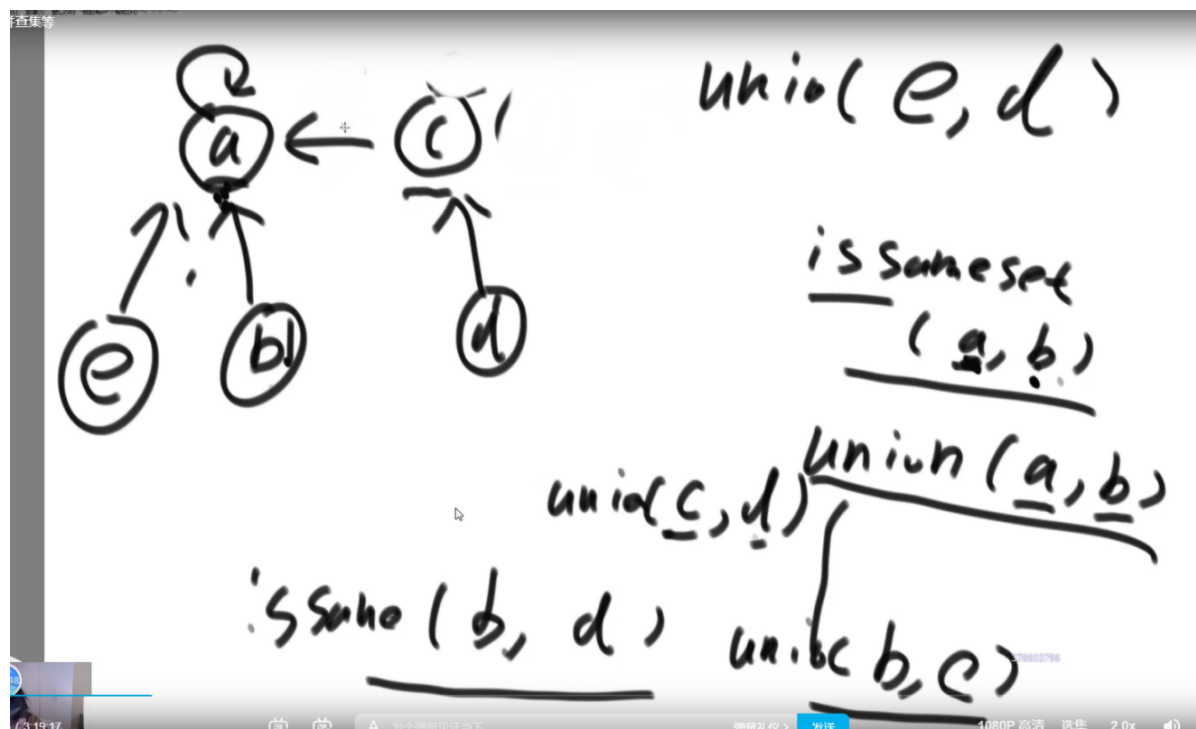 查集等
a
c
unio( e, d )
e
b
d
issameset
( a, b )
union ( a, b )
unio( c, d )
issame ( b, d )
unio( b, c )
3:19:17
弹幕礼仪
发送
1080P 高清
选集
2.0x